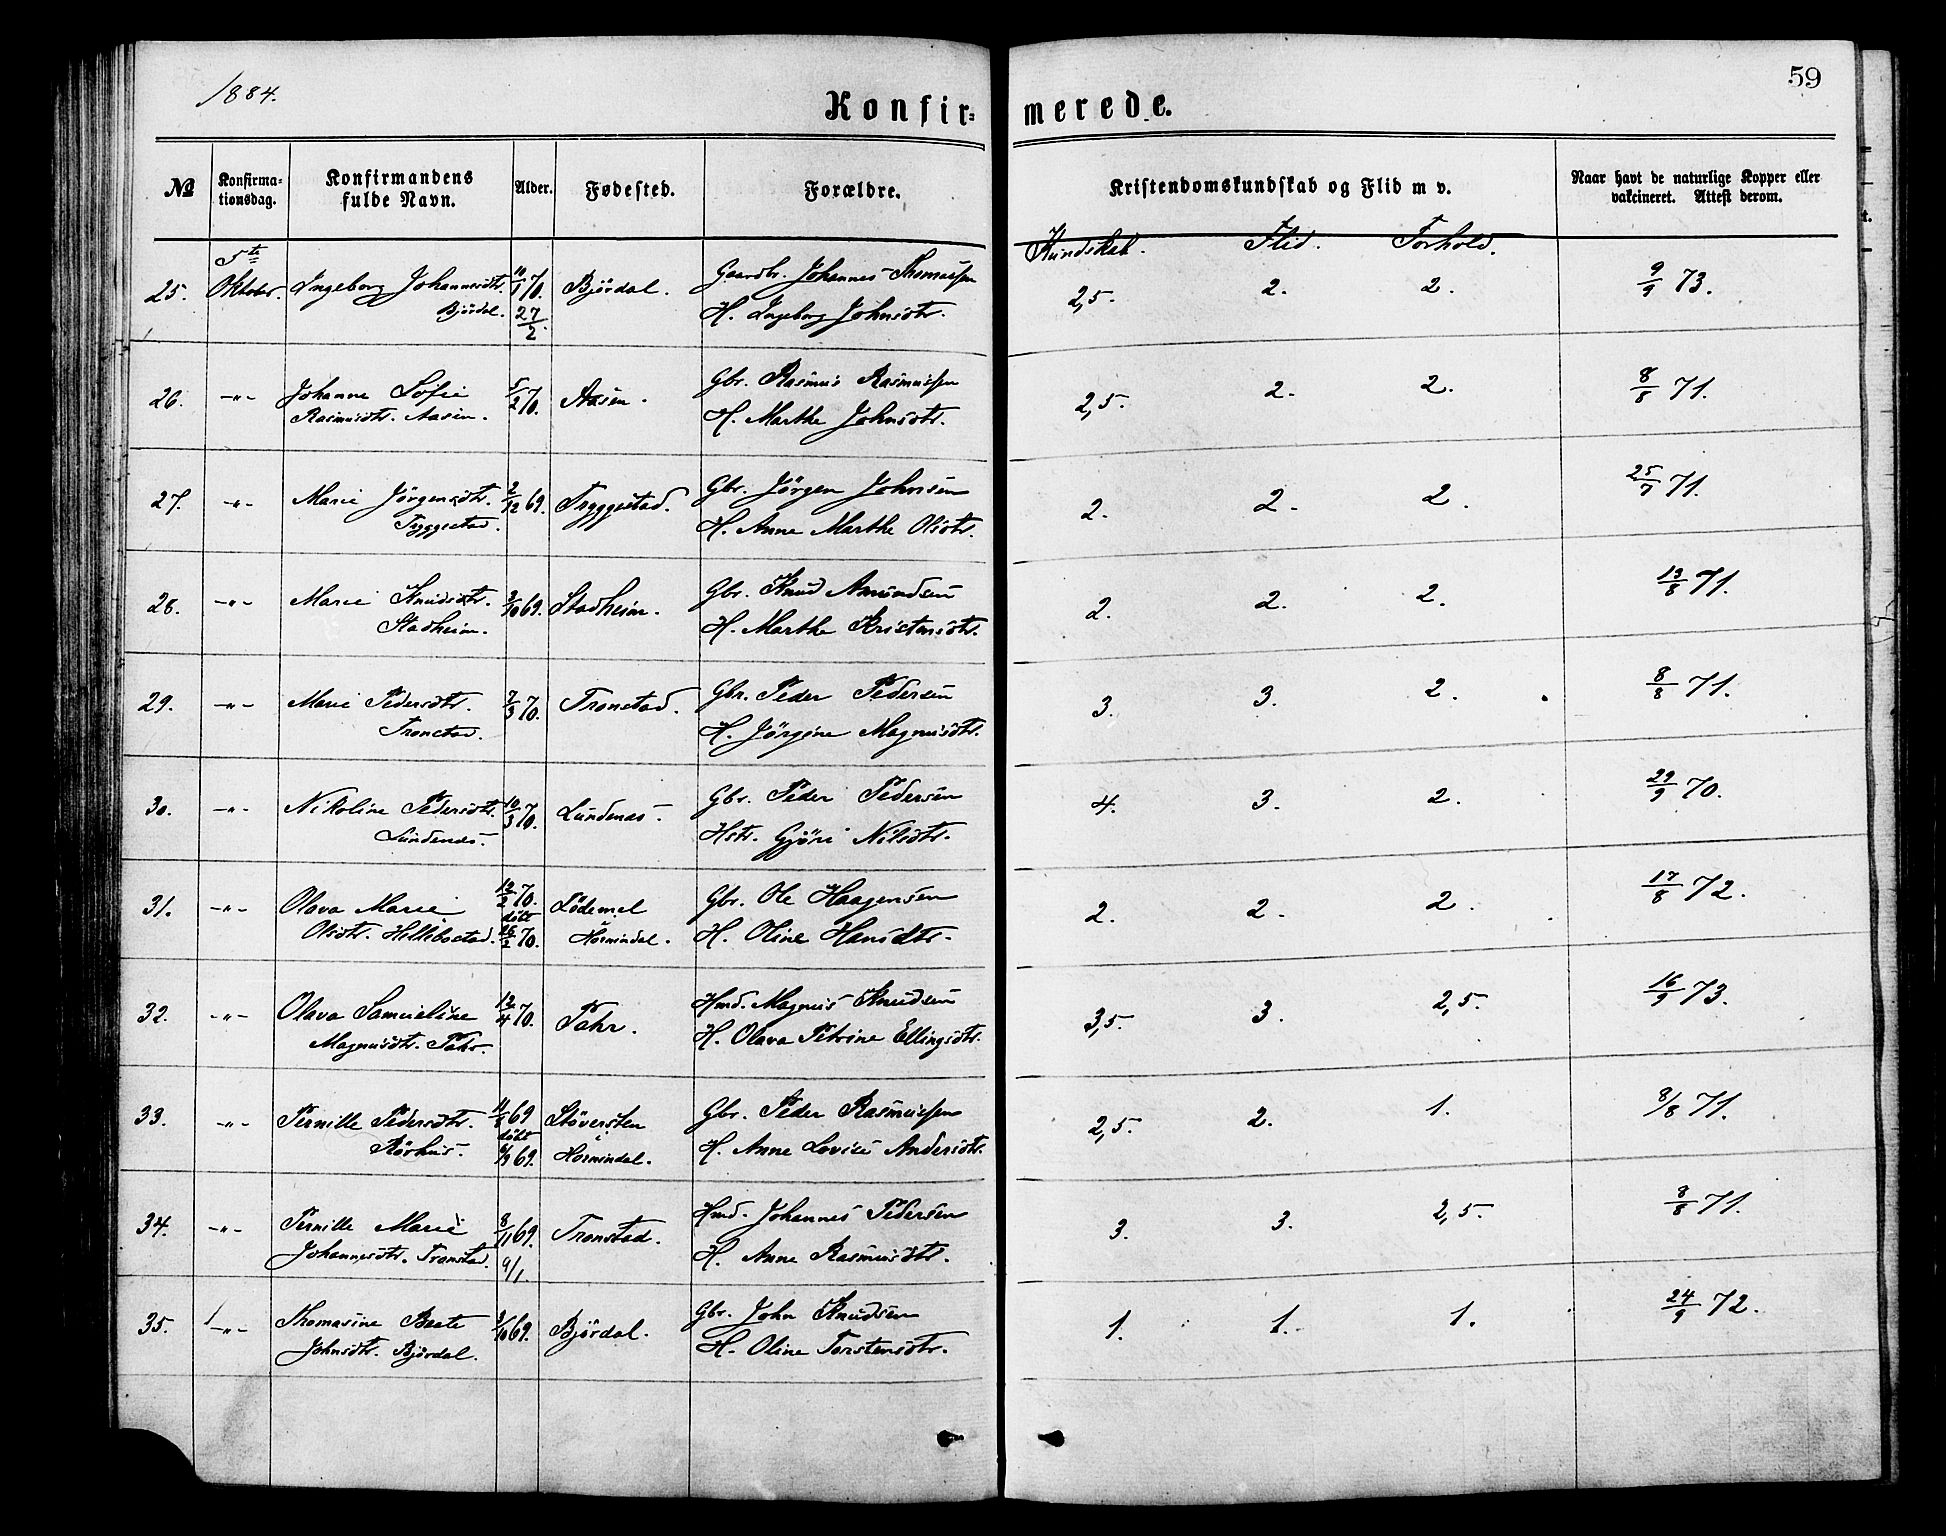 1884.
59
Konfir- merede.
№ Konfirma- Konfirmandens Alder. Fødested. Forældre. Kristendomskundskab og Flid m v. Naar havt de naturlige Kopper eller
tionsdag. fulde Navn. vakcineret. Attest derom.
Kundskab. Flid. Forhold.
5te
25. Oktober. Ingeborg Johannesdtr. 10/1 70. Bjørdal. Gaardbr. Johannes Thomassen 2,5. 2. 2. 9/9 73.
Bjørdal. 27/2. H. Ingeborg Johnsdtr.
26. -"- Johanne Sofie 5/2 70. Aasen. Gbr. Rasmus Rasmussen 2,5. 2. 2. 8/8 71.
Rasmusdtr. Aasen. H. Marthe Johnsdtr.
27. -"- Marie Jørgensdtr. 2/12 69. Tryggestad. Gbr. Jørgen Johnsen 2. 2. 2. 25/7 71.
Tryggestad. H. Anne Marthe Olsdtr.
28. -"- Marie Knudsdtr. 3/10 69. Stadheim. Gbr. Knud Amundsen 2. 2. 2. 13/8 71.
Stadheim. H. Marthe Kristensdtr.
29. -"- Marie Pedersdtr. 7/3 70. Tronstad. Gbr. Peder Pedersen 3. 3. 2. 8/8 71.
Tronstad. H. Jørgine Magnusdtr.
30. -"- Nikoline Pedersdtr. 10/3 70. Lundenæs. Gbr. Peder Pedersen 4. 3. 2. 29/9 70.
Lundenæs. Hstr. Gjøri Nilsdtr.
31. -"- Olava Marie 12/2 70. Lødemel Gbr. Ole Haagensen 2. 2. 2. 17/8 72.
døbt
Olsdtr. Hellebostad. 26/2 70. Hornindal. H. Oline Hansdtr.
32. -"- Olava Samueline 12/4 70. Tahr. Hmd. Magnus Knudsen 3,5. 3. 2,5. 16/9 73.
Magnusdtr. Tahr. H. Olava Petrine Ellingsdtr.
33. -"- Pernille Pedersdtr. 11/8 69 Støversten Gbr. Peder Rasmussen 2,5. 2. 1. 8/8 71.
døbt i
Rørhus. 9/9 69. Hornindal. H. Anne Lovise Andersdtr.
34. -"- Pernille Marie 8/11 69. Tronstad. Hmd. Johannes Pedersen 3. 3. 2,5. 8/8 71.
Johannesdtr. Tronstad. 9/1. H. Anne Rasmusdtr.
35. -"- Thomasine Beate 3/10 69. Bjørdal. Gbr. John Knudsen 1. 1. 1. 24/9 72.
Johnsdtr. Bjørdal. H. Oline Torstensdtr.